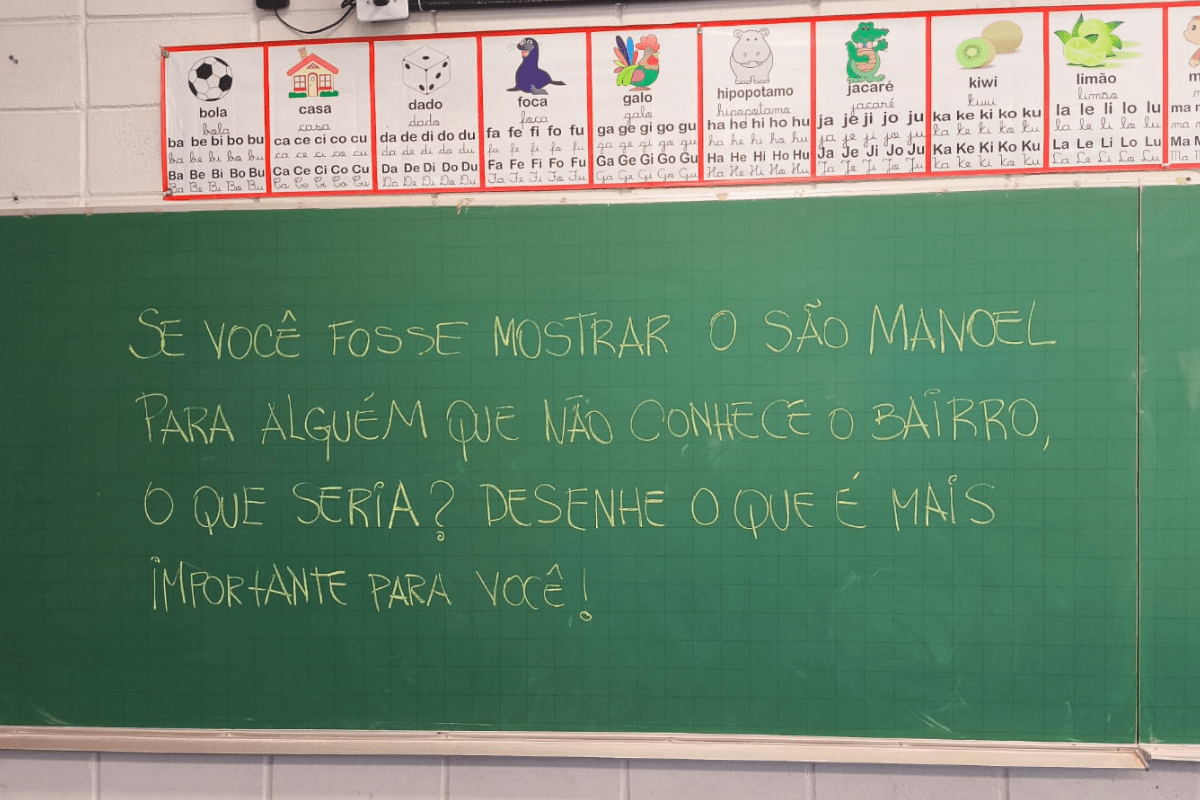 bola
bola
ba be bi bo bu
ba be bi bo bu
Ba Be Bi Bo Bu
Ba Be Bi Bo Bu
casa
casa
ca ce ci co cu
ca ce ci co cu
Ca Ce Ci Co Cu
Ca Ce Ci Co Cu
dado
dado
da de di do du
da de di do du
Da De Di Do Du
Da De Di Do Du
foca
foca
fa fe fi fo fu
fa fe fi fo fu
Fa Fe Fi Fo Fu
Fa Fe Fi Fo Fu
galo
galo
ga ge gi go gu
ga ge gi go gu
Ga Ge Gi Go Gu
Ga Ge Gi Go Gu
hipopotamo
hipopotamo
ha he hi ho hu
ha he hi ho hu
Ha He Hi Ho Hu
Ha He Hi Ho Hu
jacaré
jacaré
ja je ji jo ju
ja je ji jo ju
Ja Je Ji Jo Ju
Ja Je Ji Jo Ju
kiwi
kiwi
ka ke ki ko ku
ka ke ki ko ku
Ka Ke Ki Ko Ku
Ka Ke Ki Ko Ku
limão
limão
la le li lo lu
la le li lo lu
La Le Li Lo Lu
La Le Li Lo Lu
SE VOCÊ FOSSE MOSTRAR O SÃO MANOEL
PARA ALGUÉM QUE NÃO CONHECE O BAIRRO,
O QUE SERIA? DESENHE O QUE É MAIS
IMPORTANTE PARA VOCÊ!